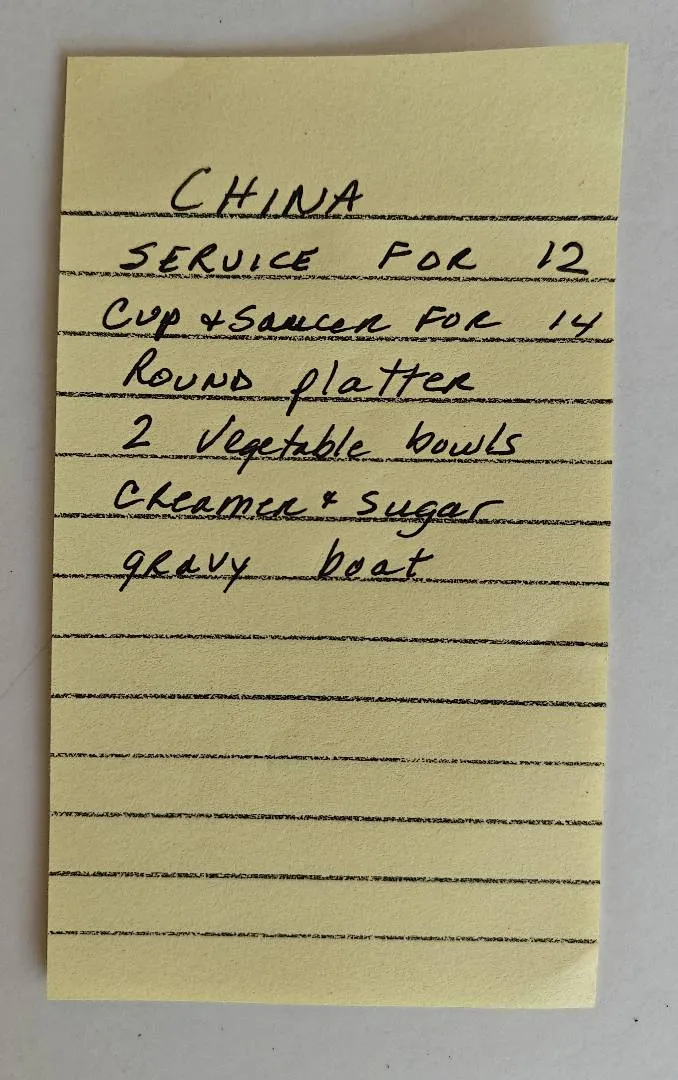 CHINA
SERVICE FOR 12
Cup & Saucer FOR 14
ROUND platter
2 Vegetable bowls
Creamer & sugar
gravy boat